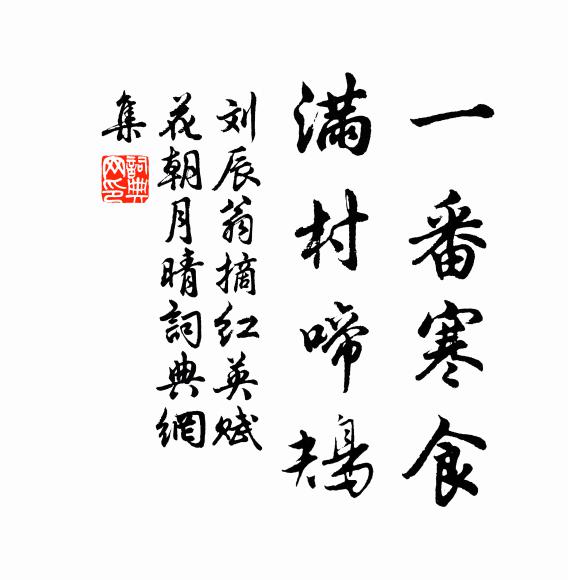 一番寒食
满村啼鴂
刘辰翁摘红英赋
花朝月晴詞典網
集
詞典